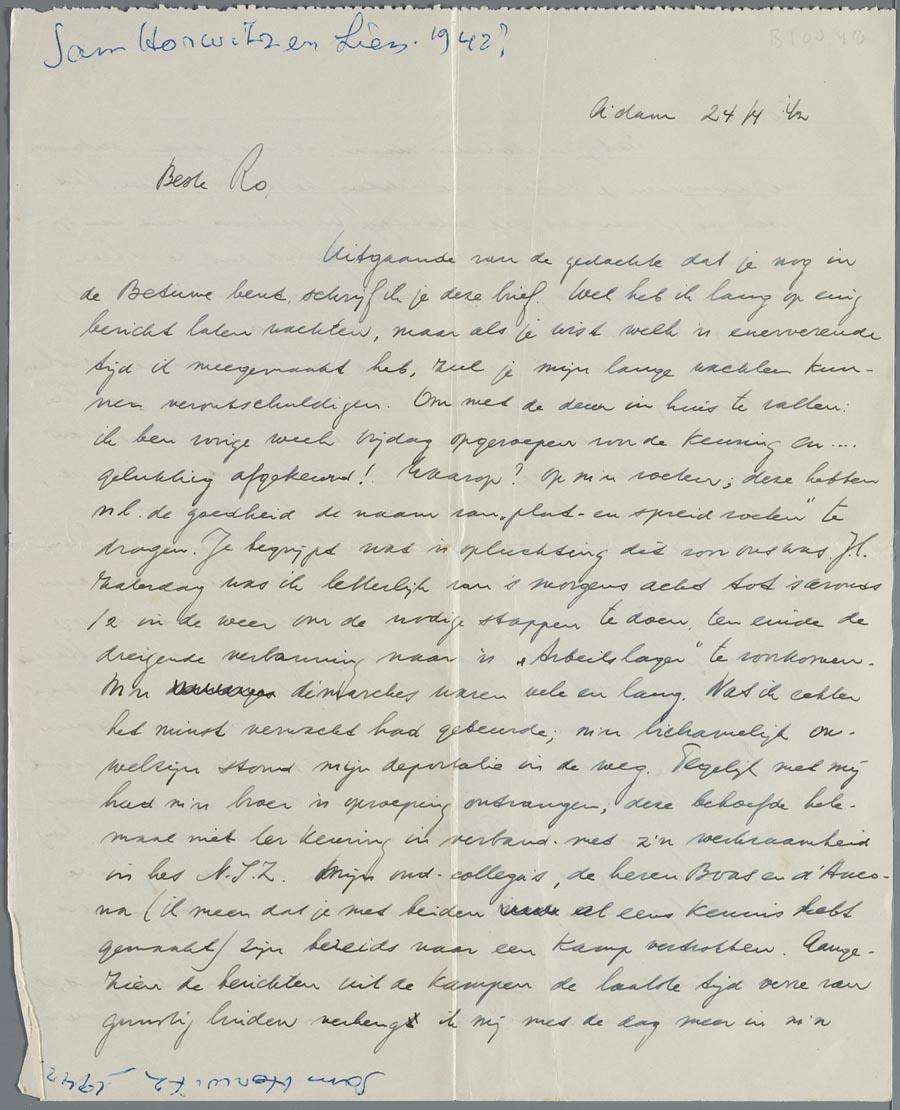 Sam Horwitz en Lien. 1942?
B100 48
A'dam 24/4 '42
Beste Ro,
Uitgaande van de gedachte dat je nog in
de Betuwe bent, schrijf ik je deze brief. Wel heb ik lang op enig
bericht laten wachten, maar als je wist welk 'n enerverende
tijd ik meegemaakt heb, zul je mijn lange wachten kun-
nen verontschuldigen. Om met de deur in huis te vallen:
ik ben vorige week Vrijdag opgeroepen voor de Keuring en....
gelukkig afgekeurd! Waarop? Op m'n voeten; deze hebben
nl. de goedheid de naam van „plat- en spreid voeten" te
dragen. Je begrijpt wat 'n opluchting dit voor ons was. J.l.
Zaterdag was ik letterlijk van 's morgens acht tot 's avonds
12 in de weer om de nodige stappen te doen, ten einde de
dreigende verbanning naar 'n „Arbeitslager" te voorkomen.
M'n démarches waren vele en lang. Wat ik echter
het minst verwacht had gebeurde; m'n lichamelijk on-
welzijn stond mijn deportatie in de weg. Tegelijk met mij
had m'n broer 'n oproeping ontvangen; deze behoefde hele-
maal niet ter Keuring in verband met z'n werkzaamheid
in het N.I.Z. Mijn oud-collega's, de heren Boas en d'Anco-
na (ik meen dat je met beiden al eens kennis hebt
gemaakt) zijn bereids naar een Kamp vertrokken. Aange-
zien de berichten uit de Kampen de laatste tijd verre van
gunstig luiden verheug ik mij met de dag meer in m'n
Sam Horwitz, 1942